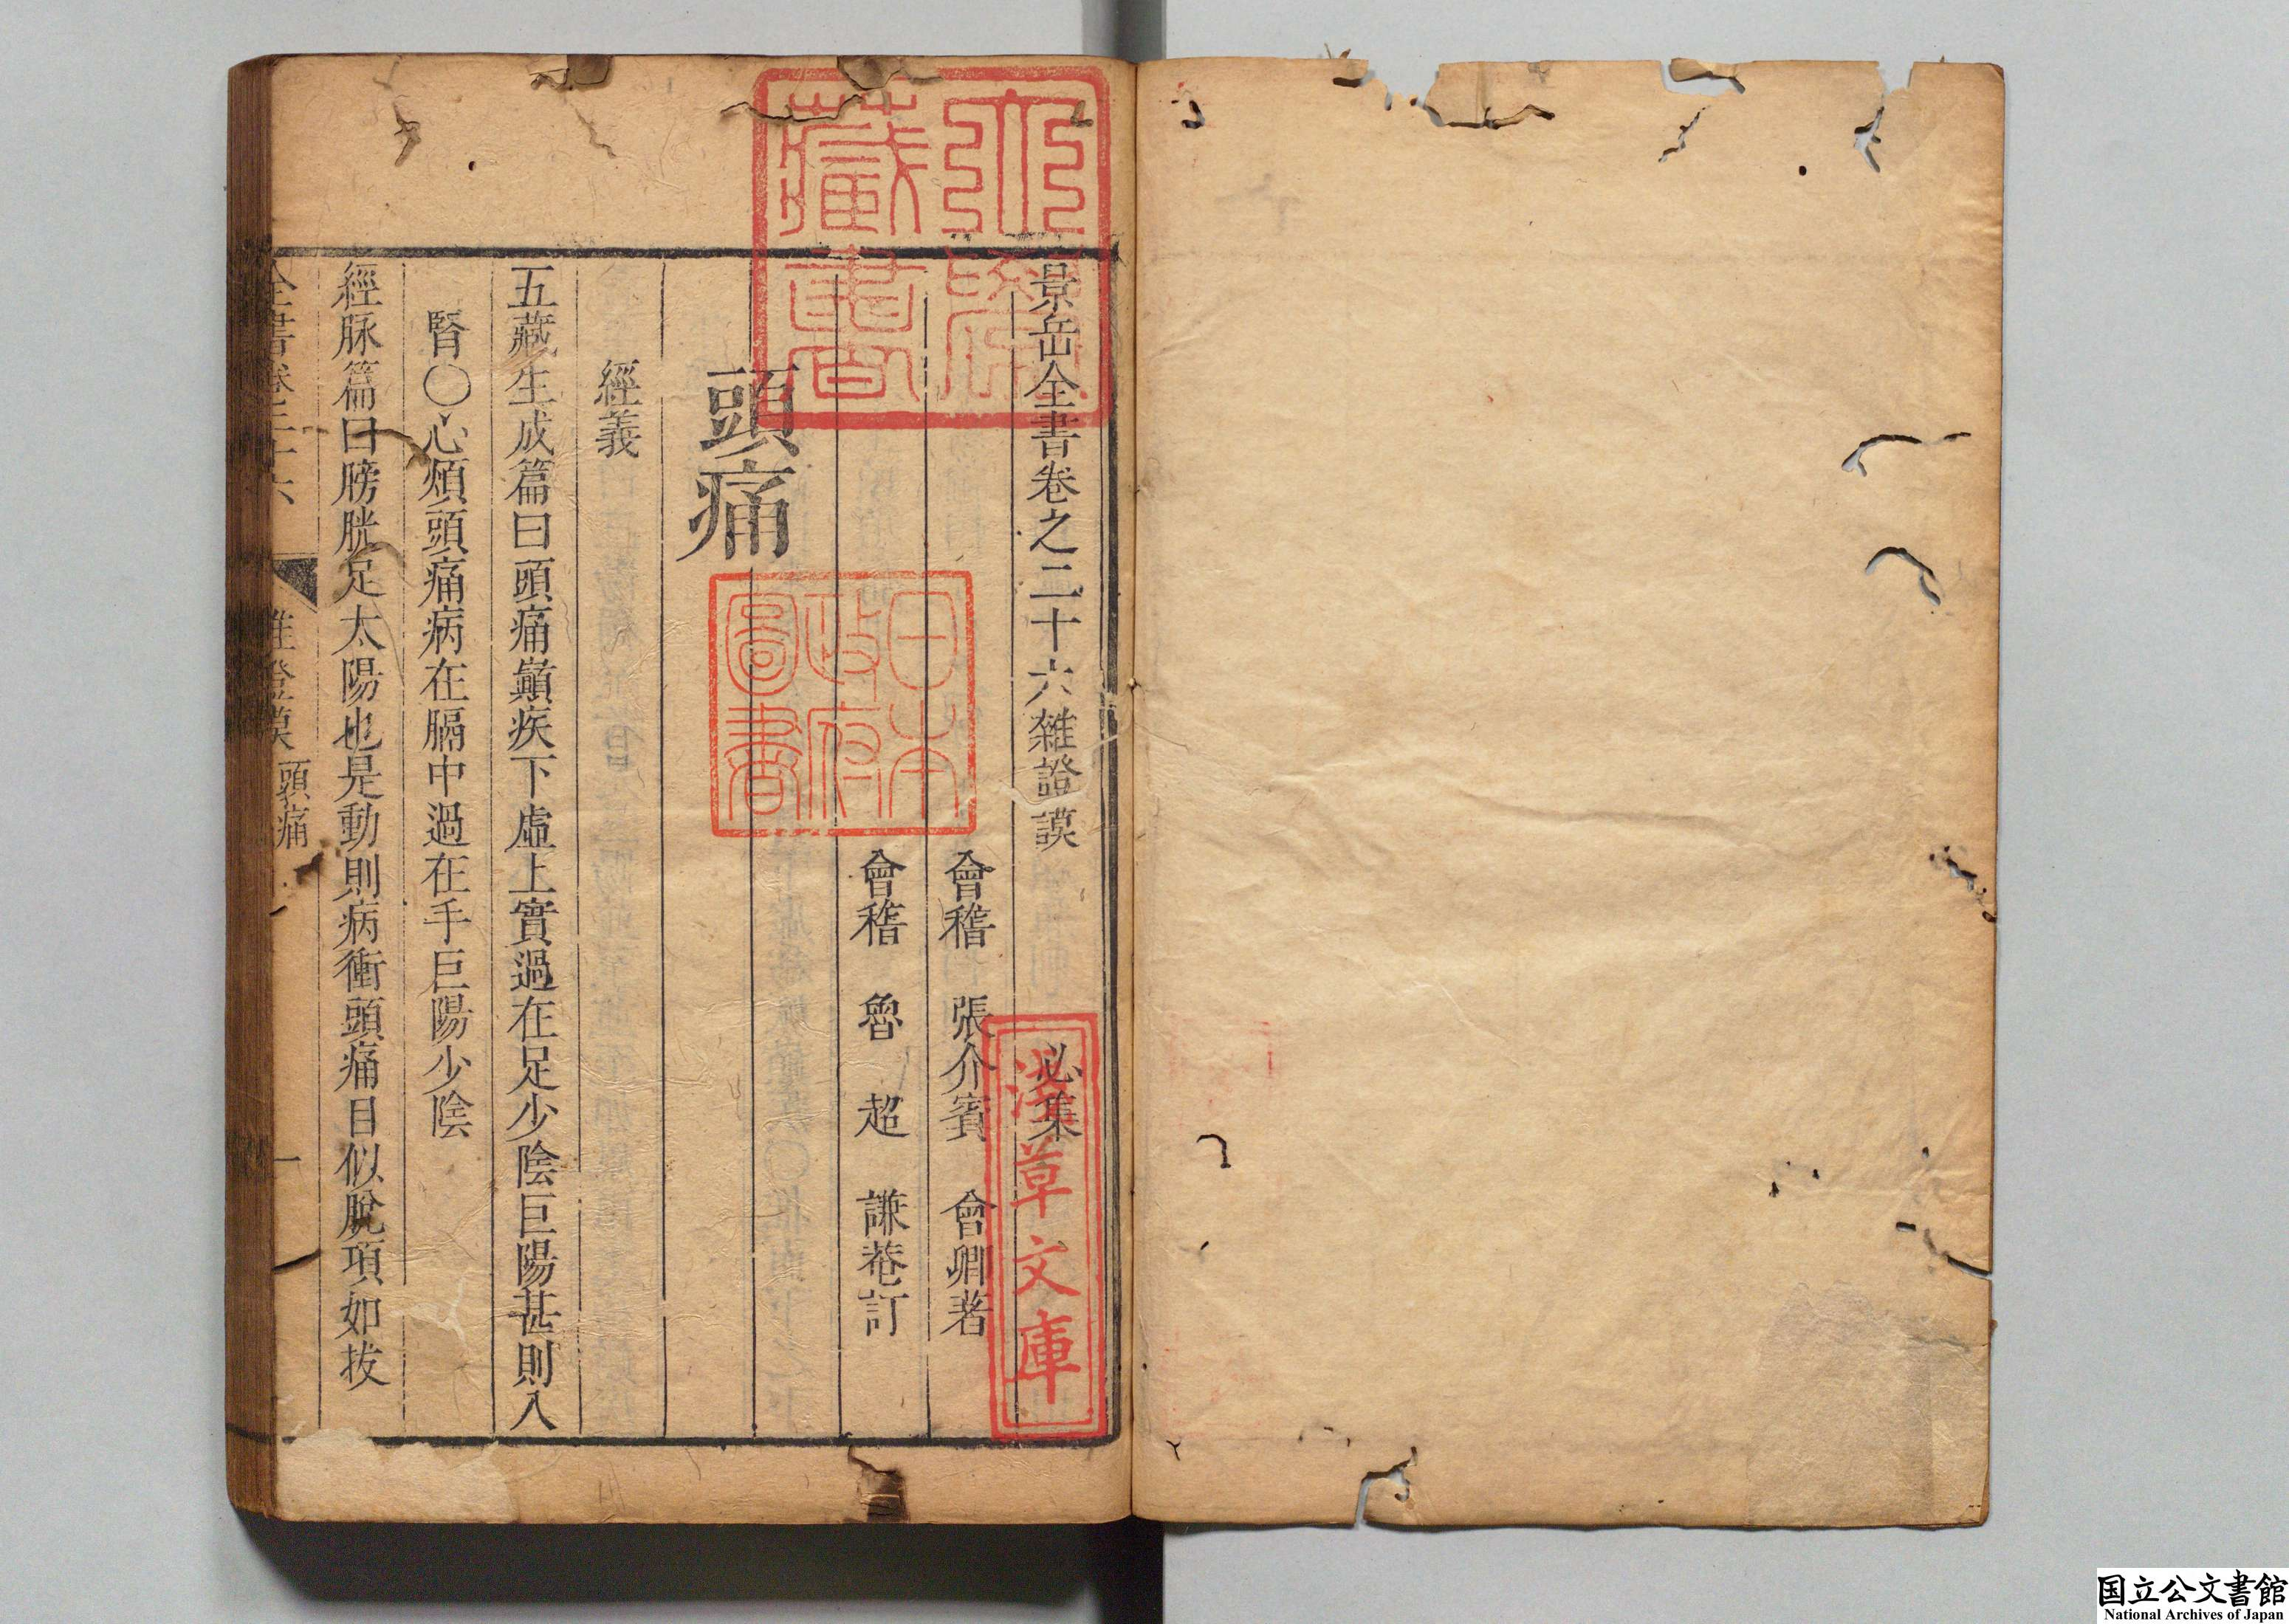 景岳全書卷之二十六雜證謨 必集
會稽 張介賓 會卿著
會稽 魯 超 謙菴訂
頭痛
經義
五藏生成篇曰頭痛巔疾下虛上實過在足少陰巨陽甚則入
腎○心煩頭痛病在膈中過在手巨陽少陰
經脉篇曰膀胱足太陽也是動則病衝頭痛目似脫項如拔
全書卷二十六 雜證謨 頭痛 一
藏書
日本
政府
圖書
淺草文庫
国立公文書館
National Archives of Japan